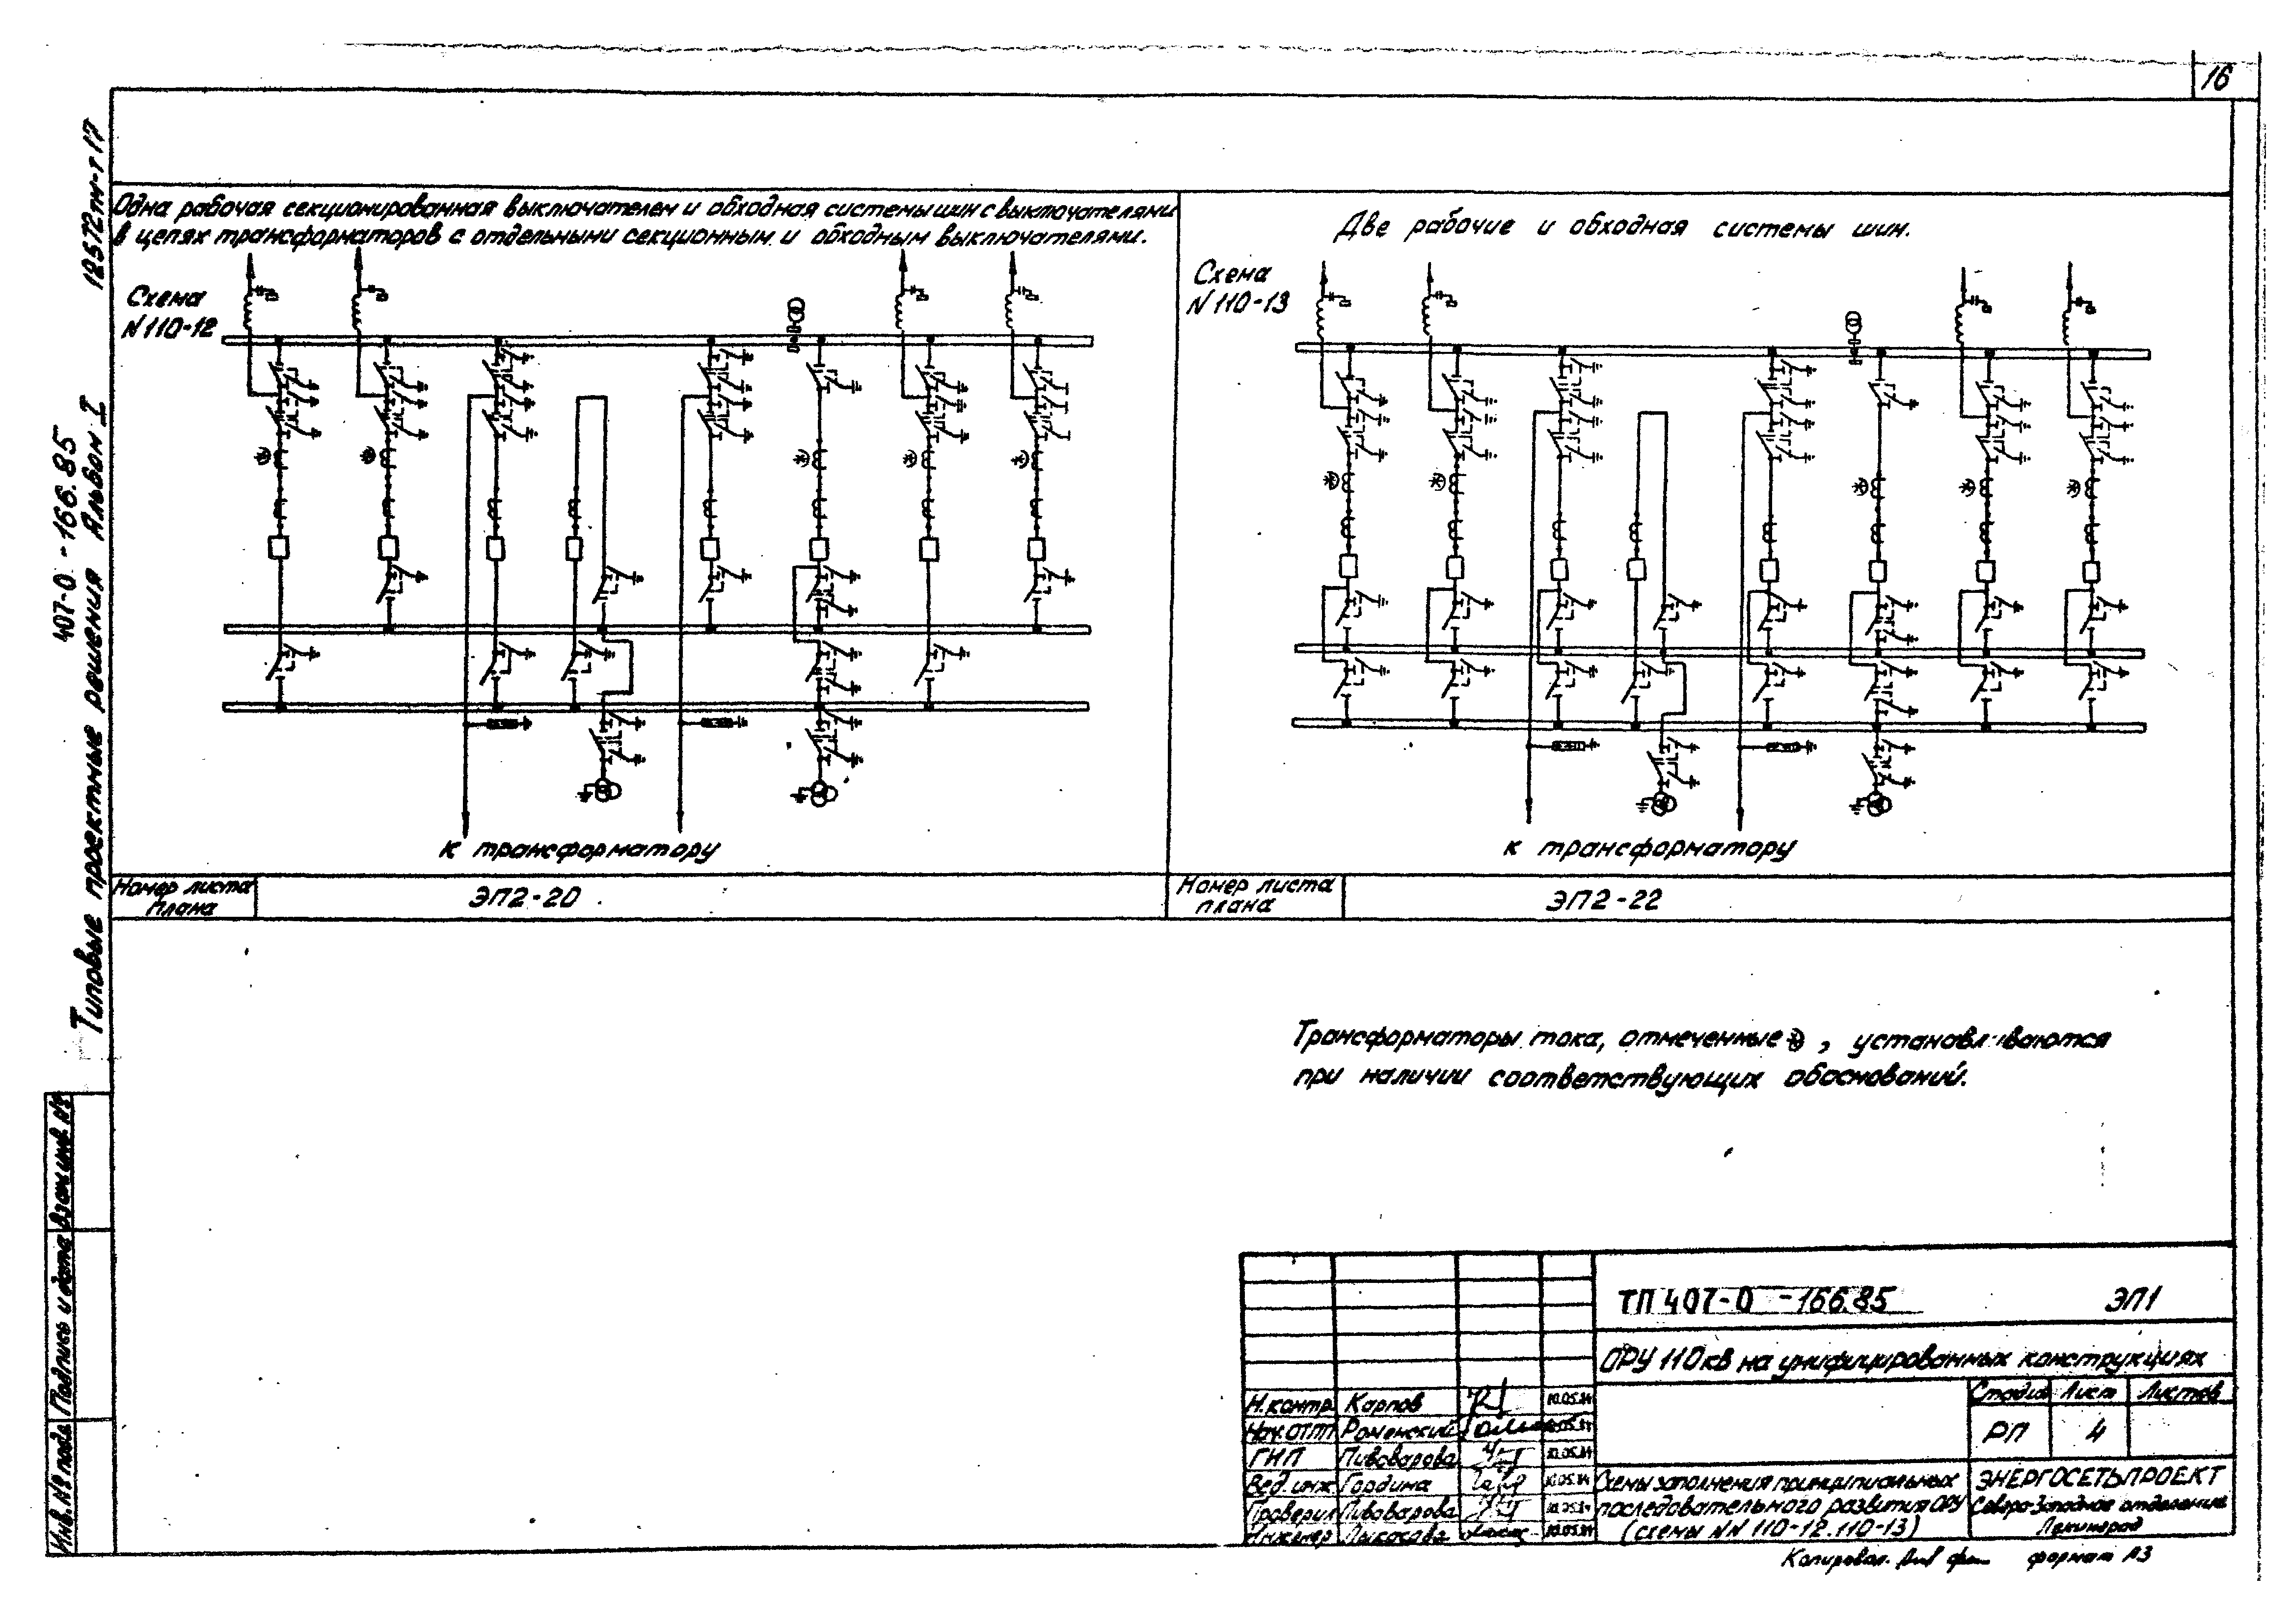 16
12572тм-т 17
407-0-166.85
Типовые проектные решения Альбом I
Одна рабочая секционированная выключателем и обходная системы шин с выключателями
в цепях трансформаторов с отдельными секционным и обходным выключателями.
Схема
N 110-12
к трансформатору
Номер листа
плана
ЭП2-20
Две рабочие и обходная системы шин.
Схема
N 110-13
к трансформатору
Номер листа
плана
ЭП2-22
Трансформаторы тока, отмеченные , устанавливаются
при наличии соответствующих обоснований.
Инв. № подл.
Подпись и дата
Взам. инв. №
ТП 407-0-166.85 ЭП1
ОРУ 110кв на унифицированных конструкциях
Стадия Лист Листов
РП 4
Н.контр. Карпов 10.05.84
Нач.ОТП Роменский 10.05.84
ГИП Пивоварова 10.05.84
Вед.инж Гордина 10.05.84
Проверил Пивоварова 10.05.84
Инженер 10.05.84
Схемы заполнения принципиальных
последовательного развития ОРУ
(схемы NN 110-12, 110-13)
ЭНЕРГОСЕТЬПРОЕКТ
Северо-Западное отделение
Ленинград
Копировал. формат А3